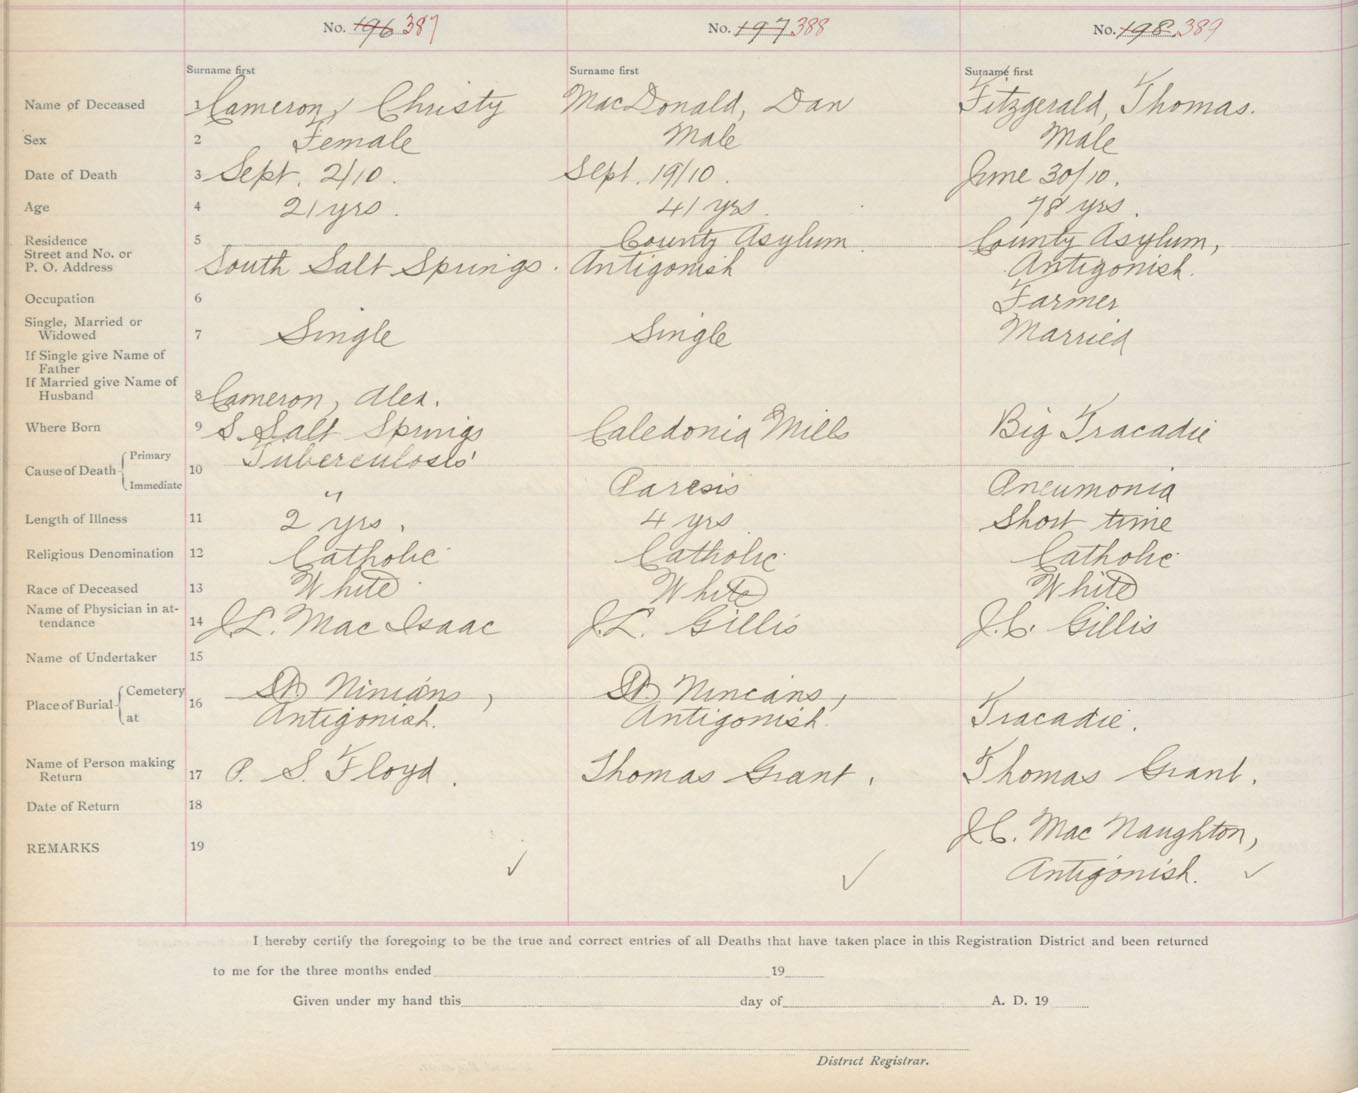 No. 196 387 No. 197 388 No. 198 389
Surname first Surname first Surname first
Name of Deceased 1 Cameron, Christy MacDonald, Dan Fitzgerald, Thomas.
Sex 2 Female Male Male
Date of Death 3 Sept. 2/10. Sept. 19/10 June 30/10.
Age 4 21 yrs. 41 yrs. 78 yrs.
Residence 5 County Asylum County Asylum,
Street and No. or
P. O. Address South Salt Springs. Antigonish Antigonish.
Occupation 6 Farmer
Single, Married or
Widowed 7 Single Single Married
If Single give Name of
Father
If Married give Name of
Husband 8 Cameron, Alex.
Where Born 9 S. Salt Springs Caledonia Mills Big Tracadie
Cause of Death { Primary 10 Tuberculosis
Immediate " Paresis Pneumonia
Length of Illness 11 2 yrs. 4 yrs Short time
Religious Denomination 12 Catholic Catholic Catholic
Race of Deceased 13 White White White
Name of Physician in at-
tendance 14 J.L. Mac Isaac J.L. Gillis J.C. Gillis
Name of Undertaker 15
Place of Burial { Cemetery 16 St. Ninians, St. Nincans,
at Antigonish. Antigonish. Tracadie.
Name of Person making
Return 17 P. S. Floyd. Thomas Grant. Thomas Grant.
Date of Return 18
J.C. Mac Naughton,
REMARKS 19 Antigonish.
I hereby certify the foregoing to be the true and correct entries of all Deaths that have taken place in this Registration District and been returned
to me for the three months ended 19
Given under my hand this day of A. D. 19
District Registrar.